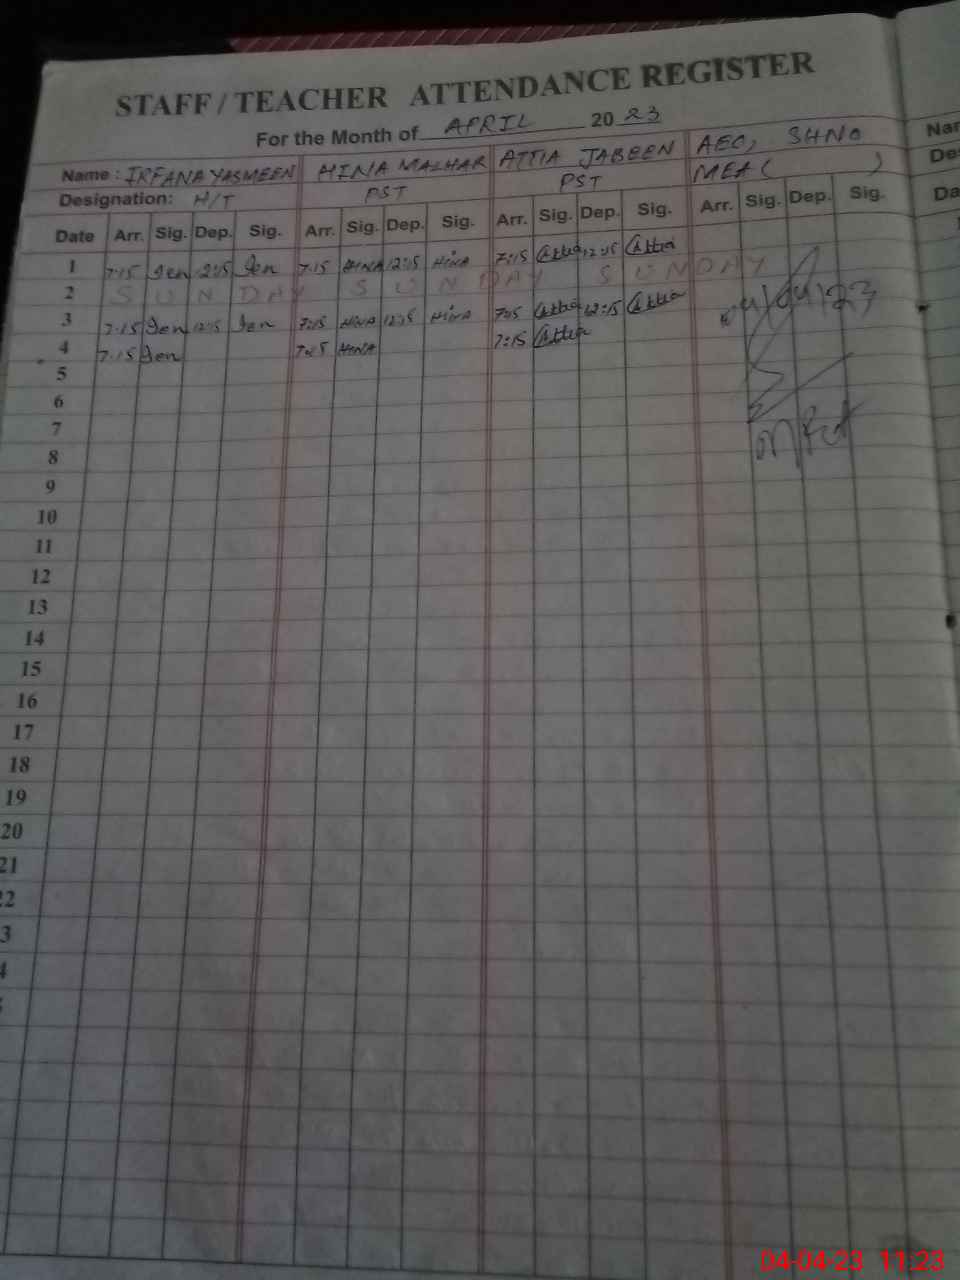 STAFF / TEACHER ATTENDANCE REGISTER
For the Month of APRIL 20 23
Name : IRFANA YASMEEN HINA MALHAR ATTIA JABEEN AEC, SHNO Nar
Designation: H/T PST PST MEA ( ) De
Date Arr. Sig. Dep. Sig. Arr. Sig. Dep. Sig. Arr. Sig. Dep. Sig. Arr. Sig. Dep. Sig. Da
1 7:15 12:15 7:15 HINA 12:15 HINA 7:15 Attia 12:15 Attia
2 SUNDAY SUNDAY SUNDAY
3 7:15 12:15 7:15 HINA 12:15 HINA 7:15 Attia 12:15 Attia 04/04/23
4 7:15 7:15 HINA 7:15 Attia
5
6
7
8
9
10
11
12
13
14
15
16
17
18
19
20
21
22
3
4
04-04-23 11:23